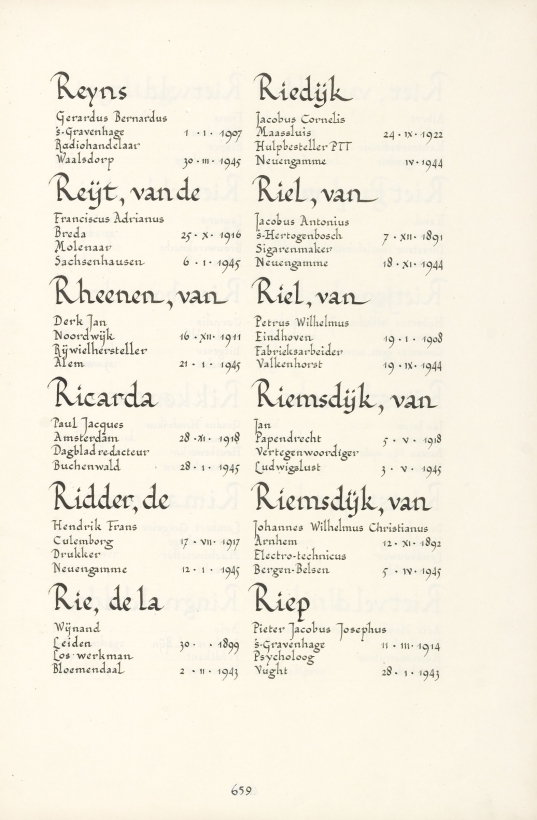 Reyns
Gerardus Bernardus
's-Gravenhage 1 · 1 · 1907
Radiohandelaar
Waalsdorp 30 · III · 1945
Reijt, van de
Franciscus Adrianus
Breda 25 · X · 1916
Molenaar
Sachsenhausen 6 · 1 · 1945
Rheenen, van
Derk Jan
Noordwijk 16 · XII · 1911
Rijwielhersteller
Alem 21 · 1 · 1945
Ricarda
Paul Jacques
Amsterdam 28 · XI · 1918
Dagbladredacteur
Buchenwald 28 · 1 · 1945
Ridder, de
Hendrik Frans
Culemborg 17 · VII · 1917
Drukker
Neuengamme 12 · 1 · 1945
Rie, de la
Wijnand
Leiden 30 · · 1899
Los werkman
Bloemendaal 2 · II · 1943
Riedijk
Jacobus Cornelis
Maassluis 24 · IX · 1922
Hulpbesteller PTT
Neuengamme IV · 1944
Riel, van
Jacobus Antonius
's-Hertogenbosch 7 · XII · 1891
Sigarenmaker
Neuengamme 18 · XI · 1944
Riel, van
Petrus Wilhelmus
Eindhoven 19 · 1 · 1908
Fabrieksarbeider
Valkenhorst 19 · IX · 1944
Riemsdijk, van
Jan
Papendrecht 5 · V · 1918
Vertegenwoordiger
Ludwigslust 3 · V · 1945
Riemsdijk, van
Johannes Wilhelmus Christianus
Arnhem 12 · XI · 1892
Electro-technicus
Bergen-Belsen 5 · IV · 1945
Riep
Pieter Jacobus Josephus
's-Gravenhage 11 · III · 1914
Psycholoog
Vught 28 · 1 · 1943
659